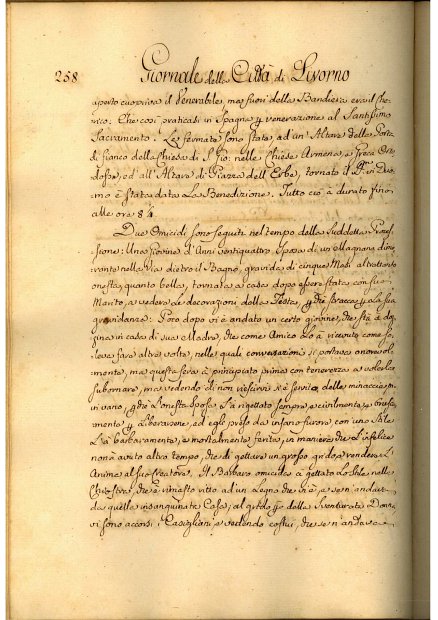 258 Giornale della Città di Livorno
aperto copriva il Venerabile, ma fuori della Bandiera era il che-
rico: Che così praticasi in Spagna p venerazione al Santissimo
Sacramento: Le fermate sono state ad un' Altare della Porta
di fianco della Chiesa di S. Gio: nelle Chiese Armena, e Greca Orto-
dossa, ed all' Altare di Piazza dell' Erbe, tornato il in Duo-
mo è stata data La Benedizione. Tutto ciò à durato fino
alle ore 8¼
Due Omicidi sono seguiti nel tempo della suddetta Proce-
ssione: Una giovine d'Anni ventiquattro Sposa di un Magnano dimo-
rante nella Via dietro il Bagno, gravida di cinque Mesi altrettanto
onesta, quanto bella, tornata a casa dopo essere stata con suo
Marito, a vedere le decorazioni della Festa, p che stracca p La sua
gravidanza: Poco dopo vi è andato un certo giovine, che stà a do-
zina in casa di sua Madre, che come Amico Lo à ricevuto come so-
leva fare altre volte, nelle quali conversazioni si portava onorevol-
mente, ma questa sera à principiato prima con tenerezza a volerla
subornare, ma vedendo di non riescirvi si è servito delle minaccie, ma
in vano, p che L'onesta sposa L'à rigettato sempre, e civilmente, e onesta-
mente p Liberarsene, ed egli preso da insano furore, con uno Stile
L'à barbaramente, e mortalmente ferita, in maniera che L'infelice
non à avuto altro tempo, che di gettare un grosso grido, e rendere L'
Anima al suo Creatore. Il Barbaro omicida à gettato Lo Stile nelle
che è rimasto vitto ad un Legno che vi è, e se n' andava
da quella insanguinata Casa, al grido p della sventurata Donna
vi sono accorsi i Casigliani, e vedendo costui, che se n' andava